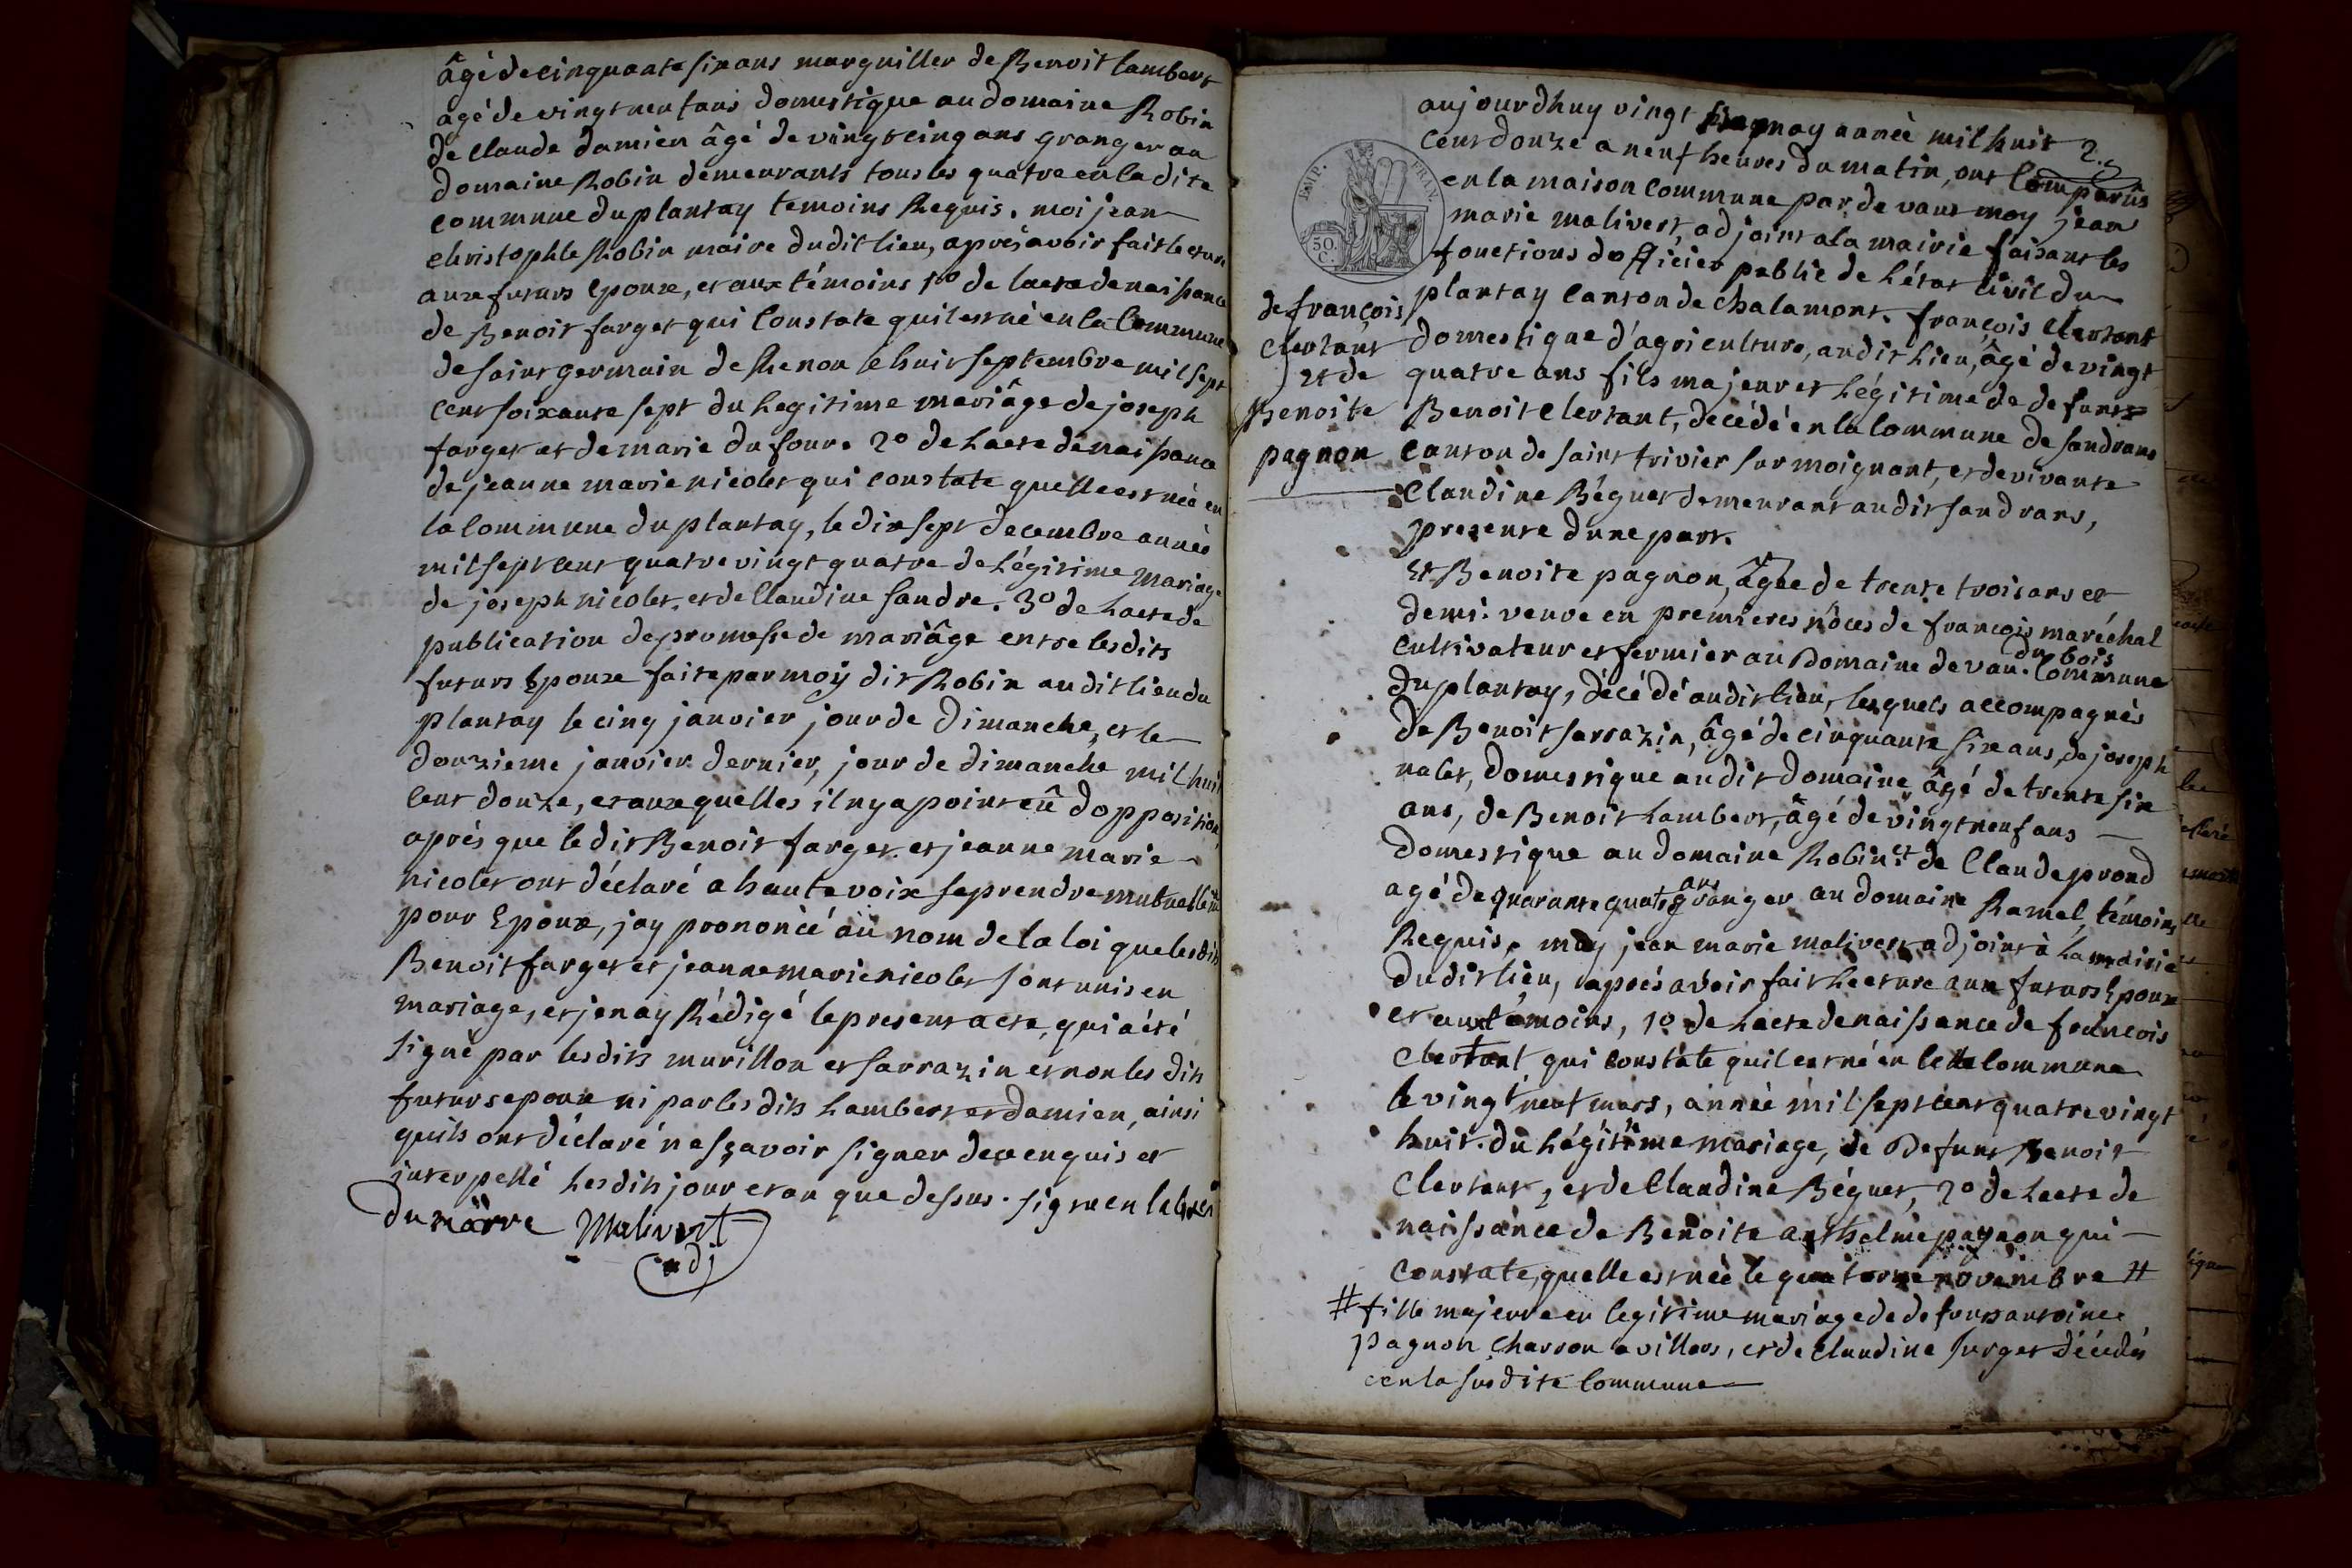 âgé de cinquante six ans marguiller de Benoit lambert
agé de vingt neuf ans domestique au domaine Robin
de Claude damien âgé de vingt cinq ans granger au
domaine Robin demeurants tous les quatre en la dite
commune du plantay temoins Requis. moi jean
christophle Robin maire dudit lieu, aprés avoir fait lecture
aux futurs Epoux, et aux témoins 1° de lacte de naissance
de Benoit farget qui Constate quil est né en la Commune
de saint germain de Renon le huit septembre mil sept
cent soixante sept du legitime mariâge de joseph
farget et de marie dufour. 2° de lacte de naissance
de jeanne marie nicolet qui constate quelle est née en
la Commune du plantay, le dix sept decembre année
mil sept cent quatre vingt quatre de légitime mariage
de joseph nicolet et de Claudine sandre. 3° de lacte de
publication de promesse de mariâge entre les dits
futurs Epoux faite par moÿ dit Robin audit lieu du
plantay le cinq janvier jour de dimanche, et le
douzieme janvier dernier, jour de dimanche mil huit
cent douze, et auxquelles il ny a point eû dopposition,
aprés que le dit Benoit farget et jeanne marie
nicolet ont déclaré a haute voix se prendre mutuellem.t
pour Epoux, jay prononcé aü nom de la loi que les dits
Benoit farget et jeanne marie nicolet sont unis en
mariage, et jen ay Rédigé le present acte, qui a été
signé par les dits murillon et sarrazin et non les dits
futurs epoux ni par les dits Lambert et damien, ainsi
quils ont déclaré ne sçavoir signer de ce enquis et
interpellé les dits jour et an que dessus. signé en labsen
du märre Malivert
adj
2.e
aujourdhuy vingt may année mil huit
cent douze a neuf heures du matin, ont Comparus
en la maison Commune par devant moy jean
marie malivert, adjoint a la mairie faisant les
fonctions dofficier public de létat civil du
plantay canton de chalamont. françois Clertant
domestique d'agriculture, audit lieu, âgé de vingt
quatre ans fils majeur et légitime de defunt
Benoit Clertant, decédé en la Commune de sandrans
canton de saint trivier sur moignant, et de vivante
Claudine Béguet demeurant audit sandrans,
presente dune part.
de françois
Clertant
et de
Benoite
pagnon
IMP. FRAN.
50.
C.
Et Benoite pagnon, âgée de trente trois ans et
demi. veuve en premieres nôces de françois maréchal
cultivateur et fermier au Domaine de vau. du bois Commune
du plantay, décédé audit lieu, lesquels accompagnés
de Benoit sarrazin, âgé de cinquante six ans, de joseph
nalet, domestique audit domaine âgé de trente six
ans, de Benoit Lambert, âgé de vingt neuf ans
domestique au domaine Robin et de Claude prond
agé de quarante quatre ans granger au domaine Ramel, témoins
Requis, moy jean marie malivert adjoint à la mairie
dudit lieu, aprés avoir fait lecture aux futurs Epoux
et aux témoins, 1° de lacte de naissance de francois
Clertant qui constate quil est né en cette Commune
le vingt neuf mars, année mil sept cent quatre vingt
huit. du légitime mariage, de Defunt Benoit
Clertant, et de Claudine Béguet, 2° de lacte de
naissance de Benoite anthelme pagnon qui
constate, quelle est née le quatorze novembre #
# fille majeure en legitime mariage de defunt antoine
Pagnon Charron a villars, et de Claudine Jurget décédés
en la susdite Commune